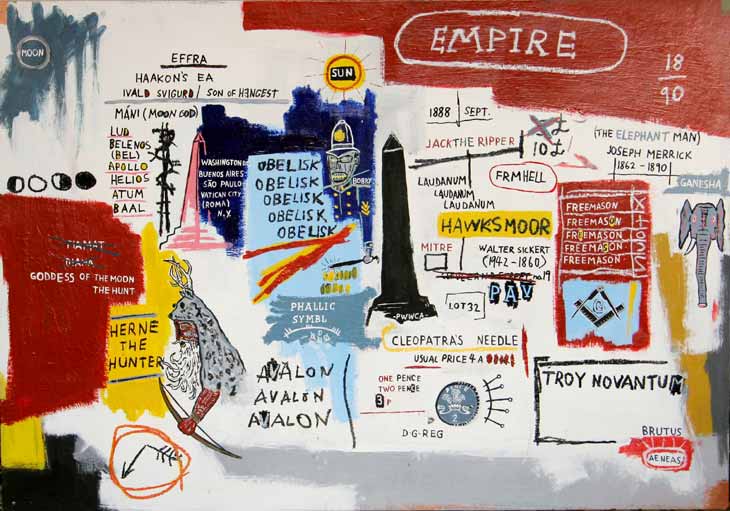 MOON
EFFRA
HAAKON'S EA
IVALD SVIGURD / SON OF HENGEST
MÁNI (MOON GOD)
LUD
BELENOS
(BEL)
APOLLO
HELIOS
ATUM
BAAL
WASHINGTON DC
BUENOS AIRES
SÃO PAULO
VATICAN CITY
(ROMA)
N.Y.
SUN
OBELISK
OBELISK
OBELISK
OBELISK
OBELISK
BOBBY
EMPIRE
18
90
1888 SEPT.
JACK THE RIPPER
X £
10 £
LAUDANUM
LAUDANUM
LAUDANUM
FRMHELL
(THE ELEPHANT MAN)
JOSEPH MERRICK
1862 - 1890
GANESHA
HAWKSMOOR
MITRE
WALTER SICKERT
(1942-1860)
PAV
LOT 32
FREEMASON
FREEMASON
FREEMASON
FREEMASON
FREEMASON
G
TIAMAT
DIANA
GODDESS OF THE MOON
THE HUNT
HERNE
THE
HUNTER
PHALLIC
SYMBL
PWWCA
CLEOPATRA'S NEEDLE
USUAL PRICE 4 A
AVALON
AVALON
AVALON
ONE PENCE
TWO PENCE
3 P
2
D·G·REG
TROY NOVANTUM
BRUTUS
AENEAS